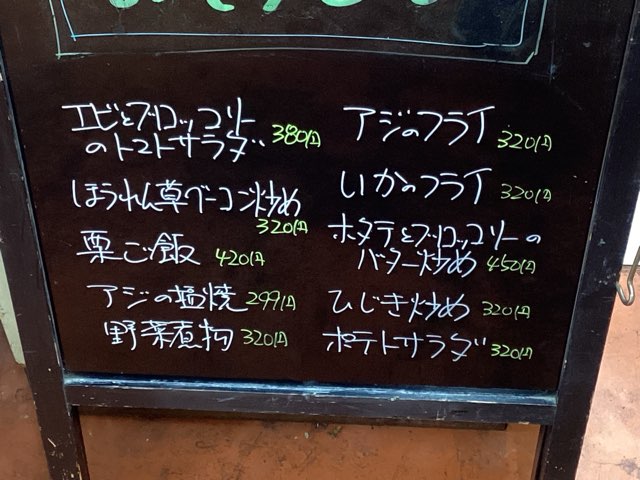 エビとブロッコリー
のトマトサラダ 380円
ほうれん草ベーコン炒め
320円
栗ご飯 420円
アジの塩焼 299円
野菜煮物 320円
アジのフライ 320円
いかのフライ 320円
ホタテとブロッコリーの
バター炒め 450円
ひじき炒め 320円
ポテトサラダ 320円